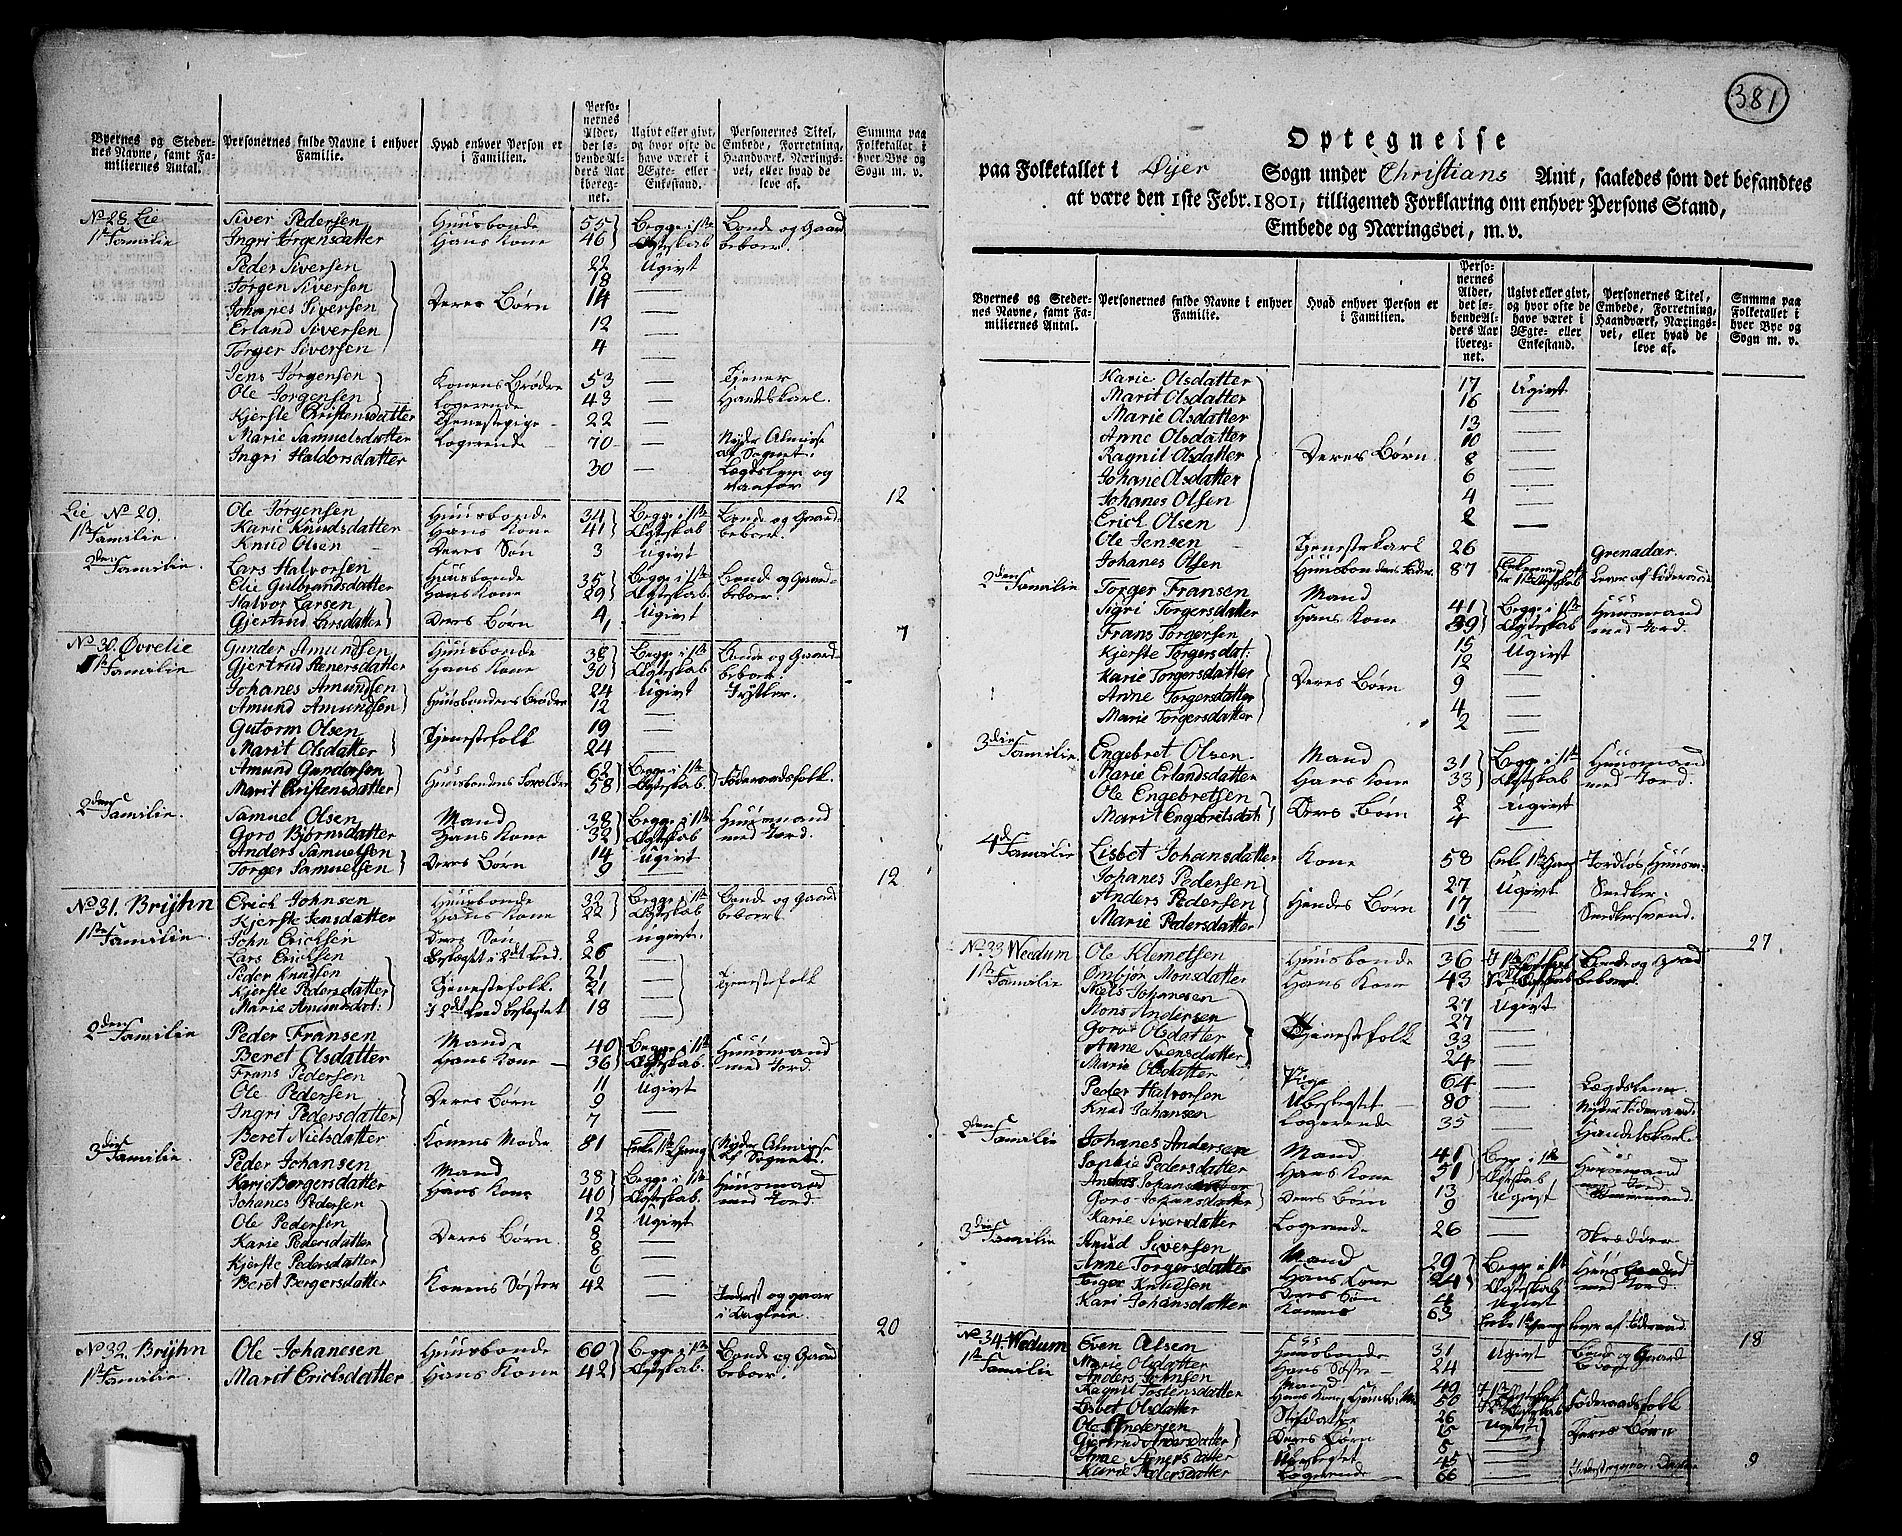 Byernes og Steder- nes Navne, samt Fa- miliernes Antal.
Personernes fulde Navne i enhver Familie.
Hvad enhver Person er i Familien.
Perso- nernes Alder, det lø- bende Al- ders Aar iberegnet.
Ugivt eller givt, og hvor ofte de have været i Ægte- eller Enkestand.
Personernes Titel, Embede, Forretning, Haandværk, Nærings- vei, eller hvad de leve af.
Summa paa Folketallet i hver Bye og Sogn m. v.
No 28. Lie Siver Pedersen Huusbonde 55 Begge i 1ste Bonde og Gaard
1ste Familie Ingri Jørgensdatter Hans Kone 46 Ægteskab beboer
Peder Siversen 22 Ugivt
Jørgen Siversen 18 —
Johanes Siversen Deres Børn 14 —
Erland Siversen 12 —
Torger Siversen 4 —
Jens Jørgensen Konens Brødre 53 — Tjener
Ole Jørgensen Logerende 43 — Handelskarl.
Kjerste Christensdatter Tjenestepige 22 —
Marie Samuelsdatter Logerende 70 — Nyder Almisse af Sognet.
Ingri Haldorsdatter 30 — Lægdslem og vanfør
12
Lie No 29. Ole Jørgensen Huusbonde 34 Begge i 1ste Bonde og Gaard-
1ste Familie. Karie Knudsdatter Hans Kone 41 Ægteskab beboer.
Knud Olsen Deres Søn 3 Ugivt
2den Familie. Lars Halvorsen Huusbonde 35 Begge i 1ste Bonde og Gaard-
Elie Gulbrandsdatter Hans Kone 29 Ægteskab beboer.
Halvor Larsen
Gjertrud Larsdatter Deres Børn 4 Ugivt
7
No 30. Øvrelie Gunder Amundsen Huusbonde 38 Begge i 1ste Bonde og Gaard-
1ste Familie Gjertrud Stenersdatter Hans Kone 30 Ægteskab beboer.
Johanes Amundsen 24 Ugivt
Amund Amundsen Huusbondens Brødre 12 —
Gutorm Olsen 19 —
Marit Olsdatter Tjenestefolk 24 —
Amund Gundersen 62 Begge i 1ste
Marit Christensdatter Huusbondens Forældre 58 Ægteskab Føderaadsfolk.
2den Familie. Samuel Olsen Mand 38 Begge i 1ste Huusmand
Goro Bjørnsdatter Hans Kone 32 Ægteskab med Jord.
Anders Samuelsen 14 Ugivt
Torger Samuelsen Deres Børn 9 —
12
No 31. Brÿhn Erich Johnsen Huusbonde 32 Begge i 1ste Bonde og Gaard
1ste Familie. Kjerste Jensdatter Hans Kone 22 Ægteskab beboer.
John Erichsen Deres Søn 2 ugivt.
Lars Erichsen 26 —
Peder Knudsen 21
Kjerste Pedersdatter Tjenestefolk. 21 Tjenestefolk
Marie Amundsdat. 18
2den Familie Peder Fransen Mand 40 Begge i 1ste Huusmand
Beret Olsdatter Hans Kone 36 Ægteskab. med Jord.
Frans Pedersen 11 Ugivt
Ole Pedersen Deres Børn 9 —
Ingri Pedersdatter 7 —
Beret Nielsdatter Konens Moder 81 Enke 1ste Gang Nyder Almisse af Sognet.
3die Familie. Peder Johansen Mand 38 Begge i 1ste Huusmand
Karie Børgersdatter Hans Kone 40 Ægteskab. med Jord.
Johanes Pedersen 12 Ugivt
Ole Pedersen 8 —
Karie Pedersdatter Deres Børn. 8 —
Kjerste Pedersdatter 6 —
Beret Børgersdatter Konens Søster 42 —
20
No 32. Brÿhn Ole Johanesen Huusbonde 60 Begge i 1ste Bonde og Gaard
1ste Familie. Marit Erichsdatter Hans Kone 42 Ægteskab. beboer.
381
Optegnelse
paa Folketallet i Øijer Sogn under Christians Amt, saaledes som det befandtes
at være den 1ste Febr. 1801, tilligemed Forklaring om enhver Persons Stand,
Embede og Næringsvei, m. v.
Byernes og Steder- nes Navne, samt Fa- miliernes Antal.
Personernes fulde Navne i enhver Familie.
Hvad enhver Person er i Familien.
Perso- nernes Alder, det lø- bende Al- ders Aar iberegnet.
Ugivt eller givt, og hvor ofte de have været i Ægte- eller Enkestand.
Personernes Titel, Embede, Forretning, Haandværk, Nærings- vei, eller hvad de leve af.
Summa paa Folketallet i hver Bye og Sogn m. v.
Karie Olsdatter 17 Ugivt
Marit Olsdatter 16 —
Marie Olsdatter 13 —
Anne Olsdatter 10 —
Ragnil Olsdatter Deres Børn 8 —
Johane Olsdatter 6 —
Johanes Olsen 4 —
Erich Olsen 2 —
Ole Jensen Tjenestekarl 26 — Grenader.
Johanes Olsen Huusbondens Fader 87 Enkemand Lever af Føderaad
2den Familie Torger Fransen Mand 41 Begge i 1ste Huusmand
Sigri Torgersdatter Hans Kone 39 Ægteskab med Jord.
Frans Torgersen 15 Ugivt
Kjerste Torgersdat: 12 —
Karie Torgersdatter Deres Børn 9 —
Anne Torgersdatter 4 —
Marie Torgersdatter 2 —
3die Familie Engebret Olsen Mand 31 Begge i 1ste Huusmand
Marie Erlandsdatter Hans Kone 33 Ægteskab med Jord.
Ole Engebretsen 8 Ugivt
Marit Engebretsdat: Deres Børn 4 —
4de Familie Lisbet Johansdatter Kone 58 Enke 1ste Gang Jordløs Huusm.
Johanes Pedersen 27 Ugivt Snedker.
Anders Pedersen Hendes Børn 17 —
Marie Pedersdatter 15 —
27
No 33 Wedum Ole Klemetsen Huusbonde 36 Bonde og Gaard
1ste Familie Ombjør Monsdatter Hans Kone 43 beboer.
Niels Johansen 27 Ugivt
Mons Andersen 27 —
Goro Olsdatter Tjenestefolk 33 —
Anne Svensdatter 24 —
Marie Olsdatter Pige 64 — Lægdslem
Peder Halvorsen Ubeslegtet 80 — Nyder Føderaad.
Knud Johansen Logerende 35 — Handelskarl.
2den Familie Johanes Andersen Mand 41 Begge i 1ste Huusmand
Sophie Pedersdatter Hans Kone 51 Ægteskab med Jord
13 Ugivt
Goro Johansdatter Deres Børn 9 —
Karie Siversdatter Logerende 26 —
3die Familie Knud Siversen Mand 29 Begge i 1ste Skrædder
Anne Torgersdatter Hans Kone 24 Ægteskab med Jord
Torger Knudsen Deres Søn 4 Ugivt
Kari Johansdatter Konens 63 Enke 1ste Gang Lever af Føderaad.
18
No 34. Wedum Even Olsen Huusbonde 31 Ugivt Bonde og Gaard
1ste Familie Marie Olsdatter Hans Søster 24 beboer
Anders Johnsen Mand 49
Ragnil Tostensdatter 50 Føderaadsfolk
Lisbet Olsdatter Stifdatter 26
Ole Andersen 15 Ugivt
Gjertrud Andersdatter Deres Børn 8 Deres Børn
Ubeslegtet 45 —
Karie Pedersdatter Logerende 66 —
9